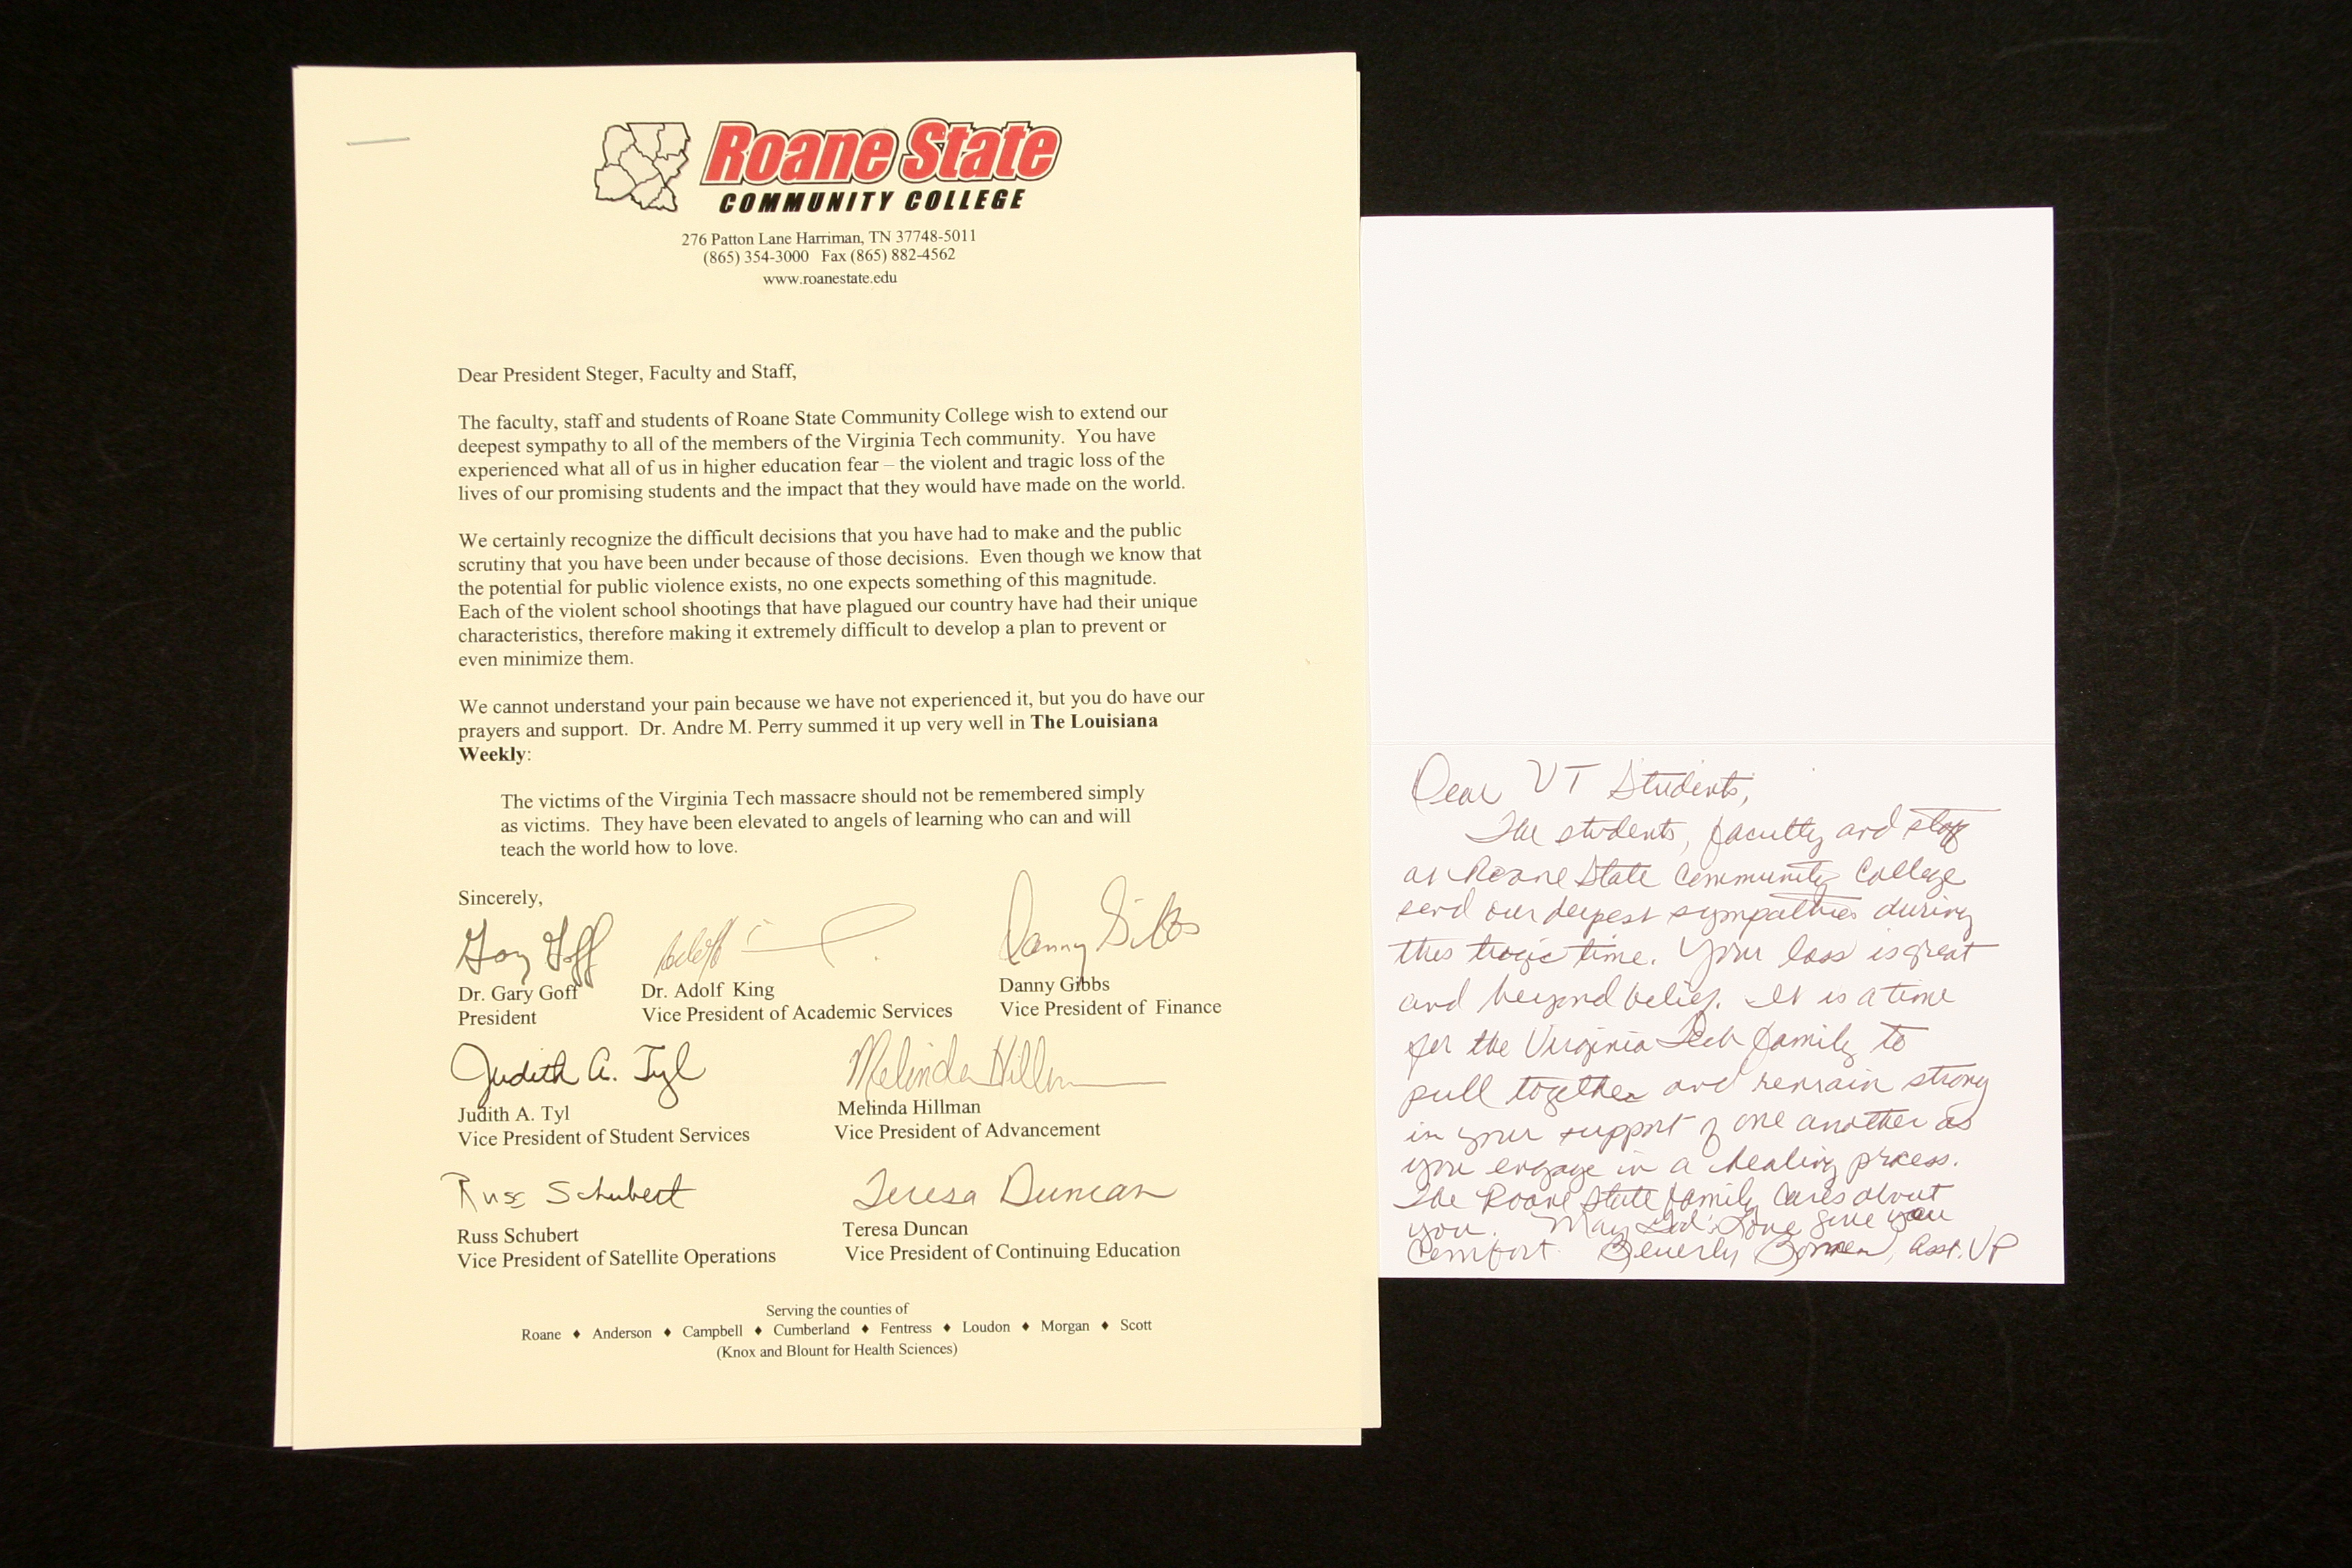 Roane State
COMMUNITY COLLEGE
276 Patton Lane Harriman, TN 37748-5011
(865) 354-3000 Fax (865) 882-4562
www.roanestate.edu
Dear President Steger, Faculty and Staff,
The faculty, staff and students of Roane State Community College wish to extend our
deepest sympathy to all of the members of the Virginia Tech community. You have
experienced what all of us in higher education fear – the violent and tragic loss of the
lives of our promising students and the impact that they would have made on the world.
We certainly recognize the difficult decisions that you have had to make and the public
scrutiny that you have been under because of those decisions. Even though we know that
the potential for public violence exists, no one expects something of this magnitude.
Each of the violent school shootings that have plagued our country have had their unique
characteristics, therefore making it extremely difficult to develop a plan to prevent or
even minimize them.
We cannot understand your pain because we have not experienced it, but you do have our
prayers and support. Dr. Andre M. Perry summed it up very well in The Louisiana
Weekly:
The victims of the Virginia Tech massacre should not be remembered simply
as victims. They have been elevated to angels of learning who can and will
teach the world how to love.
Sincerely,
Gary Goff Danny Gibbs
Dr. Gary Goff Dr. Adolf King Danny Gibbs
President Vice President of Academic Services Vice President of Finance
Judith A. Tyl Melinda Hillman
Judith A. Tyl Melinda Hillman
Vice President of Student Services Vice President of Advancement
Russ Schubert Teresa Duncan
Russ Schubert Teresa Duncan
Vice President of Satellite Operations Vice President of Continuing Education
Serving the counties of
Roane ♦ Anderson ♦ Campbell ♦ Cumberland ♦ Fentress ♦ Loudon ♦ Morgan ♦ Scott
(Knox and Blount for Health Sciences)
Dear VT Students,
The students, faculty and staff
at Roane State Community College
send our deepest sympathies during
this tragic time. Your loss is great
and beyond belief. It is a time
for the Virginia Tech family to
pull together and remain strong
in your support of one another as
you engage in a healing process.
The Roane State family cares about
you. May God's Love give you
comfort. Beverly Asst. VP